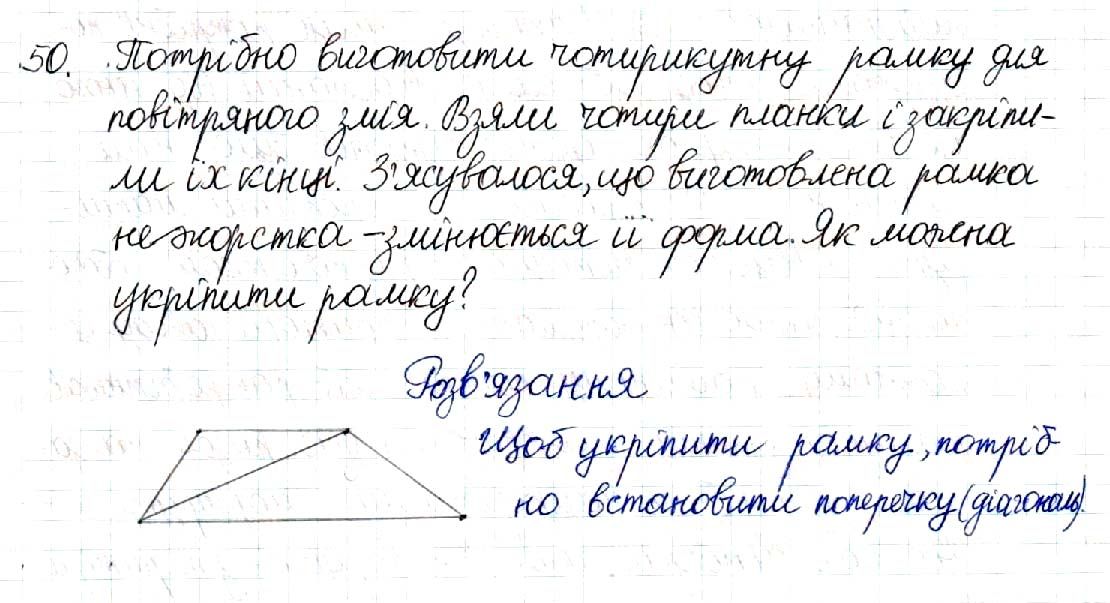 50. Потрібно виготовити чотирикутну рамку для
повітряного змія. Взяли чотири планки і закріпи-
ли їх кінці. З'ясувалося, що виготовлена рамка
нежорстка - змінюється її форма. Як можна
укріпити рамку?
Розв'язання
Щоб укріпити рамку, потріб
но встановити поперечку (діагональ).